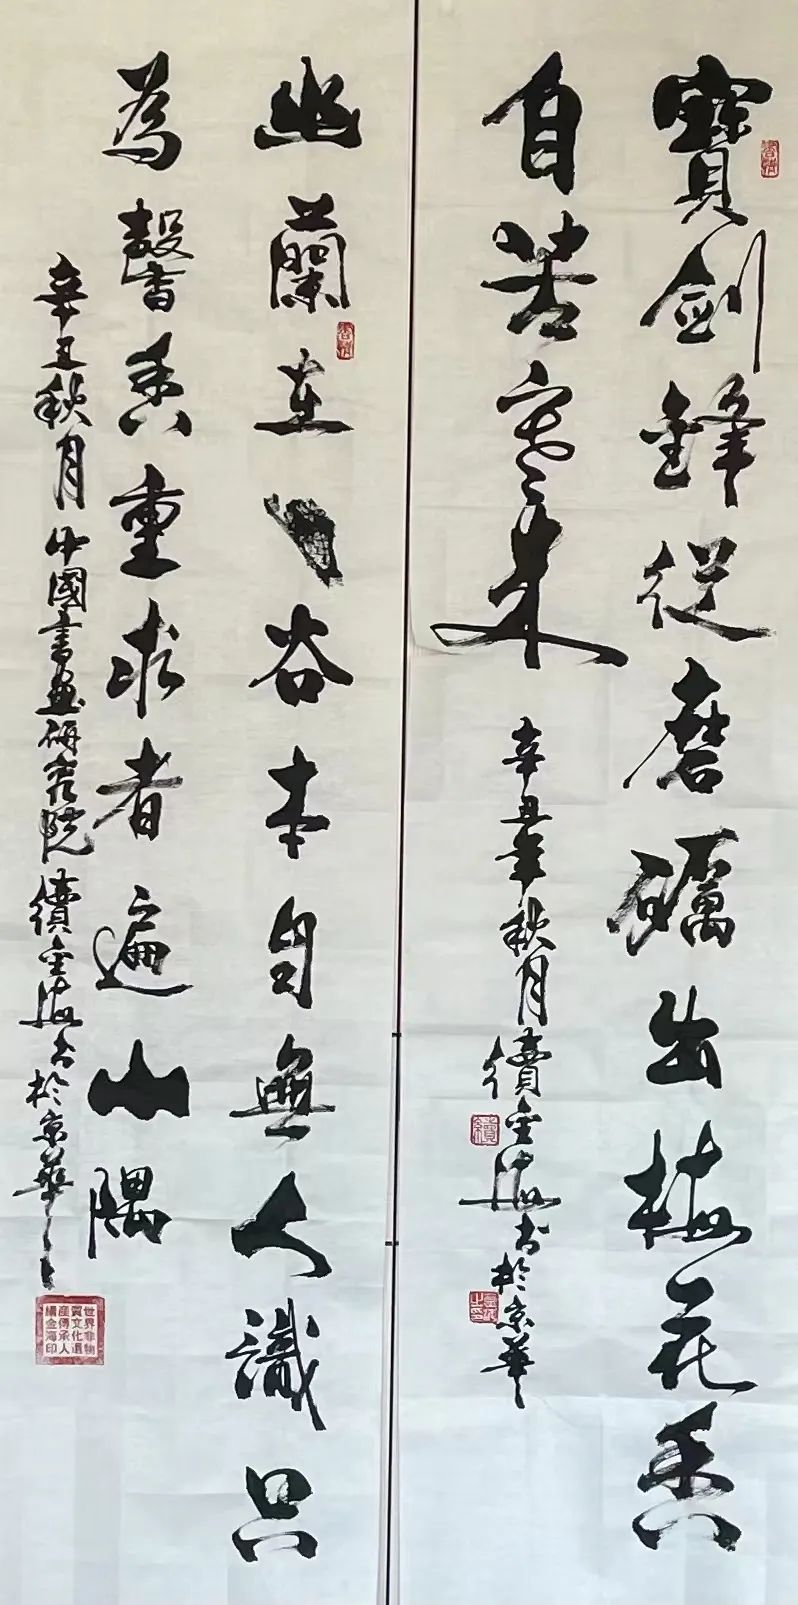 寶劍鋒從磨礪出梅花香
自苦寒来
辛丑年秋月續金海书於京華
幽蘭在谷本自無人識只
為馨香重求者遍山隅
辛丑秋月中國書畫研究院續金海书於京華
世界非物
質文化遺
產傳承人
續金海印